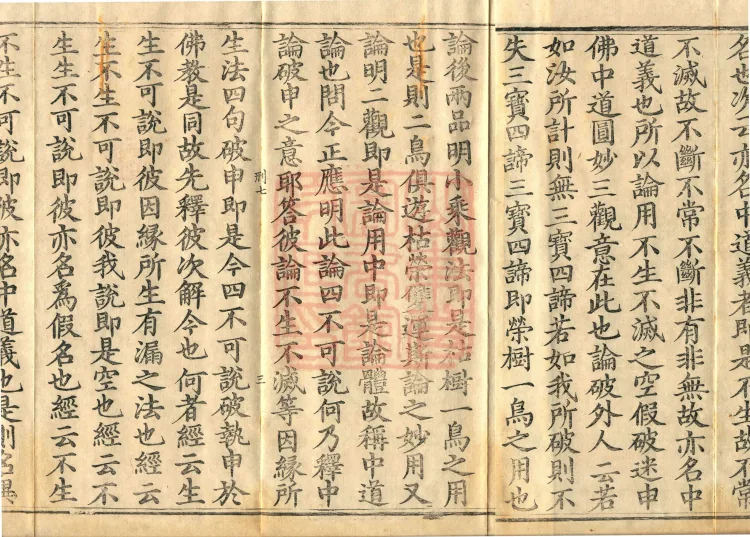 名也次云亦名中道義者即是不生故不常
不滅故不斷不常不斷非有非無故亦名中
道義也所以論用不生不滅之空假破迷申
佛中道圓妙三觀意在此也論破外人云若
如汝所計則無三寶四諦若如我所破則不
失三寶四諦三寶四諦即榮樹一鳥之用也
論後兩品明小乘觀法即是枯樹一鳥之用
也是則二鳥俱遊枯榮雙運斯論之妙用又
論明二觀即是論用中即是論體故稱中道
論也問今正應明此論四不可說何乃釋中
論破申之意耶答彼論不生不滅等因緣所
刑七
三
生法四句破申即是今四不可說破執申於
佛教是同故先釋彼次解今也何者經云生
生不可說即彼因緣所生有漏之法也經云
生不生不可說即彼我說即是空也經云不
生生不可說即彼亦名爲假名也經云不生
不生不可說即彼亦名中道義也是則名異